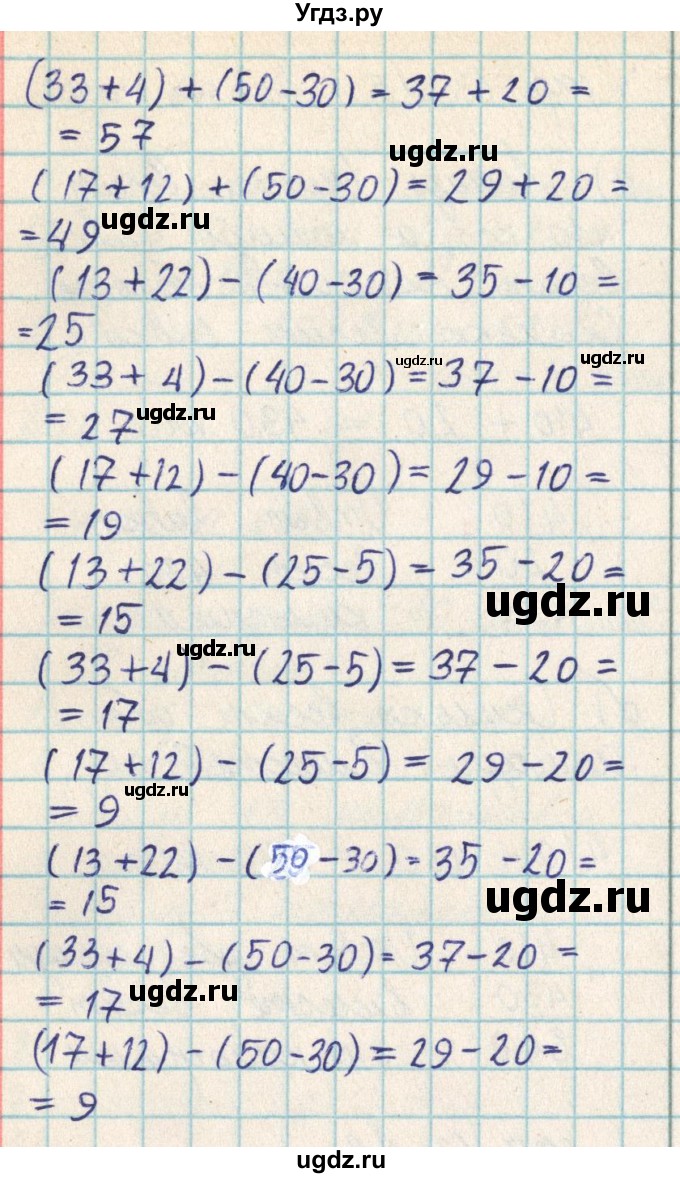 Угдз.ру
(33+4)+(50-30)=37+20=
=57
ugdz.ru
(17+12)+(50-30)=29+20=
=49 ugdz.ru
(13+22)-(40-30)=35-10=
=25
ugdz.ru ugdz.ru
(33+4)-(40-30)=37-10=
=27 ugdz.ru
(17+12)-(40-30)=29-10=
=19
(13+22)-(25-5)=35-20=
ugdz.ru
=15
ugdz.ru
(33+4)-(25-5)=37-20=
=17
(17+12)-(25-5)=29-20=
=9 ugdz.ru
(13+22)-(50-30)=35-20=
=15 ugdz.ru
(33+4)-(50-30)=37-20=
=17 ugdz.ru
(17+12)-(50-30)=29-20=
=9
ugdz.ru